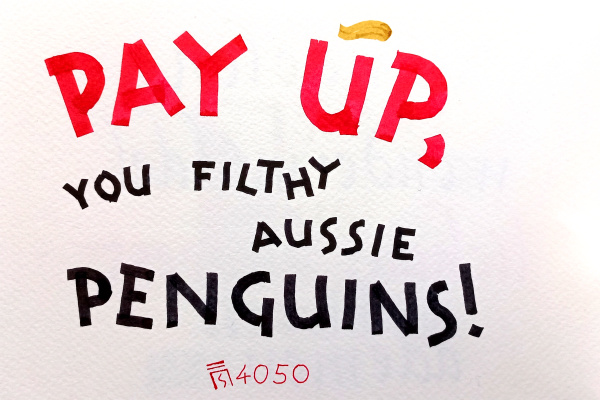 PAY UP,
YOU FILTHY
AUSSIE
PENGUINS!
4050